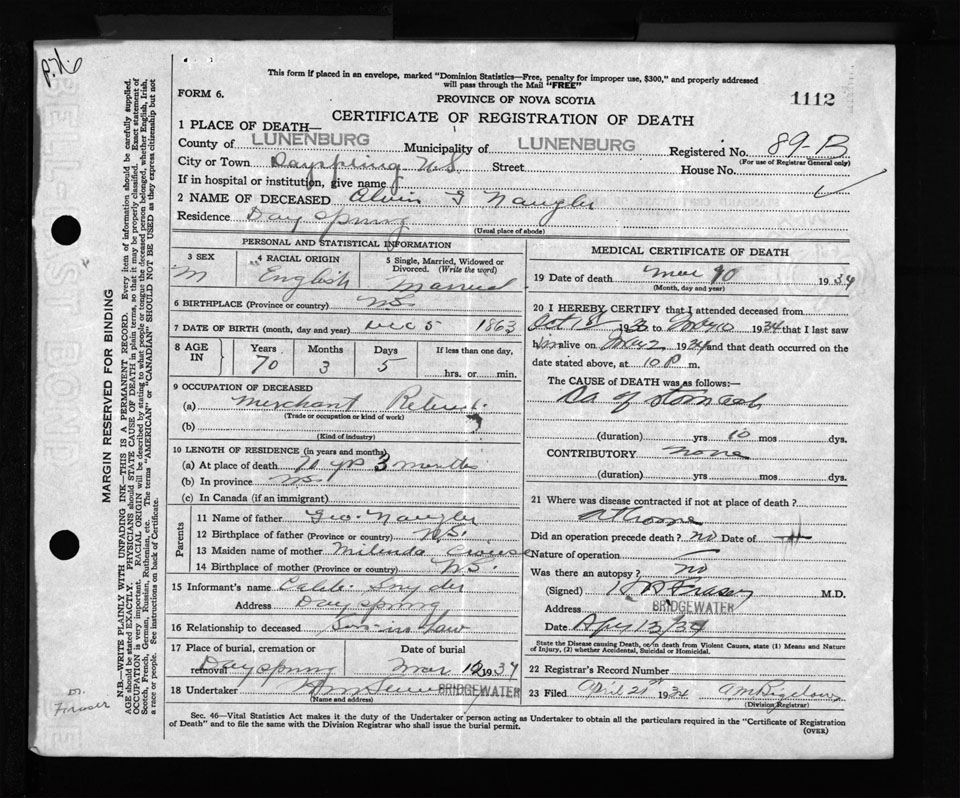 P.N.
This form if placed in an envelope, marked "Dominion Statistics—Free, penalty for improper use, $300," and properly addressed
will pass through the Mail "FREE"
FORM 6.
PROVINCE OF NOVA SCOTIA
1112
CERTIFICATE OF REGISTRATION OF DEATH
1 PLACE OF DEATH—
County of LUNENBURG Municipality of LUNENBURG Registered No. 89-B
(For use of Registrar General only)
City or Town Dayspring N.S. Street House No.
If in hospital or institution, give name
2 NAME OF DECEASED Alvin G Naugler
Residence Dayspring
(Usual place of abode)
PERSONAL AND STATISTICAL INFORMATION
3 SEX 4 RACIAL ORIGIN 5 Single, Married, Widowed or
Divorced. (Write the word)
M English Married
6 BIRTHPLACE (Province or country) N.S.
7 DATE OF BIRTH (month, day and year) Dec 5 1863
8 AGE IN Years Months Days If less than one day,
70 3 5 hrs. or min.
9 OCCUPATION OF DECEASED
(a) Merchant Retired.
(Trade or occupation or kind of work)
(b)
(Kind of industry)
10 LENGTH OF RESIDENCE (in years and months)
(a) At place of death 70 yrs 3 months
(b) In province N.S.
(c) In Canada (if an immigrant)
Parents
11 Name of father Geo. Naugler
12 Birthplace of father (Province or country) N.S.
13 Maiden name of mother Milinda Crouse
14 Birthplace of mother (Province or country) N.S.
15 Informant's name Caleb Snyder
Address Dayspring
16 Relationship to deceased Son-in-law
17 Place of burial, cremation or removal Date of burial
Dayspring Mar 12 1934
18 Undertaker BRIDGEWATER
(Name and address)
MEDICAL CERTIFICATE OF DEATH
19 Date of death Mar 10 1934
(Month, day and year)
20 I HEREBY CERTIFY that I attended deceased from
Oct 1933 to Mar 10 1934 that I last saw
him alive on Mar 2 1934 and that death occurred on the
date stated above, at 10 P m.
The CAUSE OF DEATH was as follows:—
Ca of stomach
(duration) yrs 10 mos dys.
CONTRIBUTORY none
(duration) yrs mos dys.
21 Where was disease contracted if not at place of death?
at home
Did an operation precede death? no Date of
Nature of operation
Was there an autopsy? no
(Signed) Fraser M.D.
Address BRIDGEWATER
Date Apr 13/34
State the Disease causing Death, or in death from Violent Causes, state (1) Means and Nature of
Injury, (2) whether Accidental, Suicidal or Homicidal.
22 Registrar's Record Number
23 Filed April 21st 1934 A M Bigelow
(Division Registrar)
Sec. 46—Vital Statistics Act makes it the duty of the Undertaker or person acting as Undertaker to obtain all the particulars required in the "Certificate of Registration
of Death" and to file the same with the Division Registrar who shall issue the burial permit.
(OVER)
MARGIN RESERVED FOR BINDING
N.B.—WRITE PLAINLY WITH UNFADING INK—THIS IS A PERMANENT RECORD. Every item of information should be carefully supplied.
AGE should be stated EXACTLY. PHYSICIANS should STATE CAUSE OF DEATH in plain terms, so that it may be properly classified. Exact statement of
OCCUPATION is very important. RACIAL ORIGIN will be described by stating to what people or tongue the deceased person belonged, whether English, Irish,
Scotch, French, German, Russian, Ruthenian, etc. The terms "AMERICAN" or "CANADIAN" SHOULD NOT BE USED as they express citizenship but not
a race or people. See instructions on back of Certificate.
Dr.
Fraser